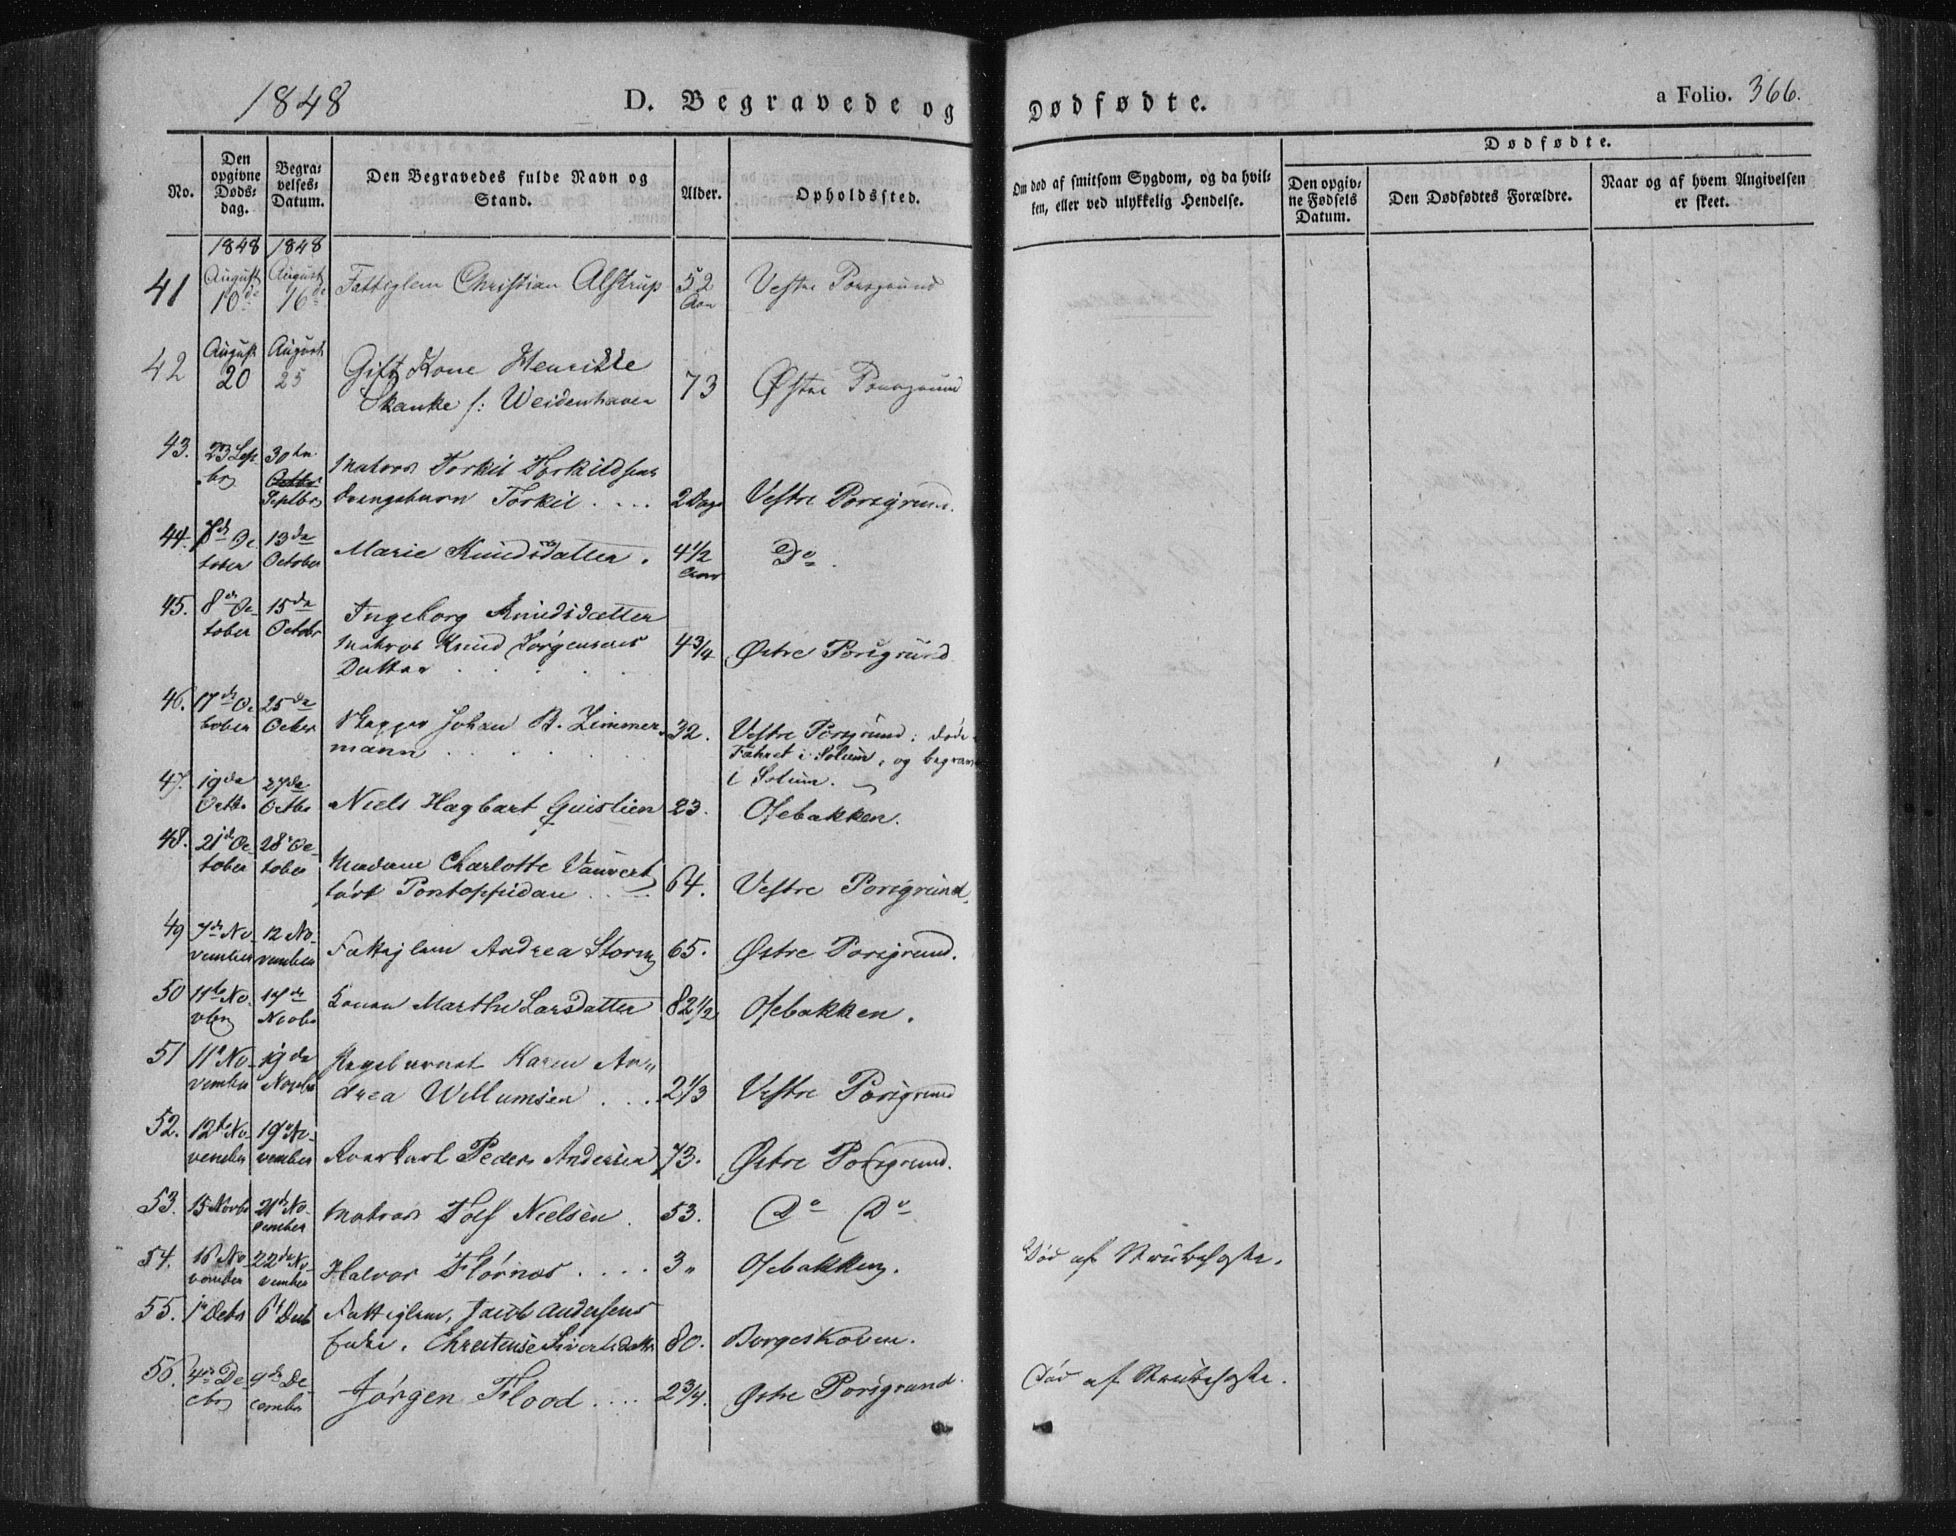 1848
D. Begravede og Dødfødte.
a Folio. 366.
No.
Den opgivne Døds-dag.
Begra-velses-Datum.
Den Begravedes fulde Navn og Stand.
Alder.
Opholdssted.
Om død af smitsom Sygdom, og da hvil-
ken, eller ved ulykkelig Hendelse.
Dødfødte.
Den opgiv-
ne Fødsels
Datum.
Den Dødfødtes Forældre.
Naar og af hvem Angivelsen
er skeet.
1848 1848
41 August 10de August 16de Fattiglem Christian Alstrup 52 Aar Vestre Porsgrund
42 August 20 August 25 Gift Kone Henrikke
Skanke f: Weidenhaven 73 Østre Porsgrund
43. 23 Sept br 30te Septbr Matros Torkil Torkildsens
drengebarn Torkil . . . . 2 Dage Vestre Porsgrund.
44. 7de October 13de October Marie Knudsdatter. 4 1/2 Aar Do
45. 8de October 15de Octobr Ingeborg Knudsdatter
Matros Knud Jørgensens
Datter 4 3/4 Østre Porsgrund
46. 17de October 25de Octbr Skipper Johan B. Zimmer-
mann 32. Vestre Porsgrund; døde
i Solum, og begrav
i Solum.
47. 19de Octbr 27de Octbr Niels Hagbart Quislien 23. Osebakken.
48. 21de October 28de October Madame Charlotte Vauvert
født Pontoppidan . . . 64. Vestre Porsgrund.
49 7de November 12 November Fattiglem Andrea Storm 65. Østre Porsgrund.
50 11te Novbr 17de Novbr Konen Marthe Larsdatter 82 1/2 Osebakken.
51 11te November 19de Novbr Karen An-
drea Willumsen . . . 2 1/3 Vestre Porsgrund
52. 12te November 19de November Peder Andersen 73. Østre Porsgrund.
53. 15 Novbr 21de November Matros Tolf Nielsen. 53. Do Do
54. 16 November 22de November Halvor Flørnes . . . . 3 " Osebakken. Død af Strubehoste.
55. 1te Debr 6te Decb Fattiglem, Jacob Andersens
Enke, Christense Sivertsdatter 80. Borgeskoven.
56. 4de Decbr 9de December Jørgen Flood . . . . 2 3/4. Østre Porsgrund. Død af Strubehoste.